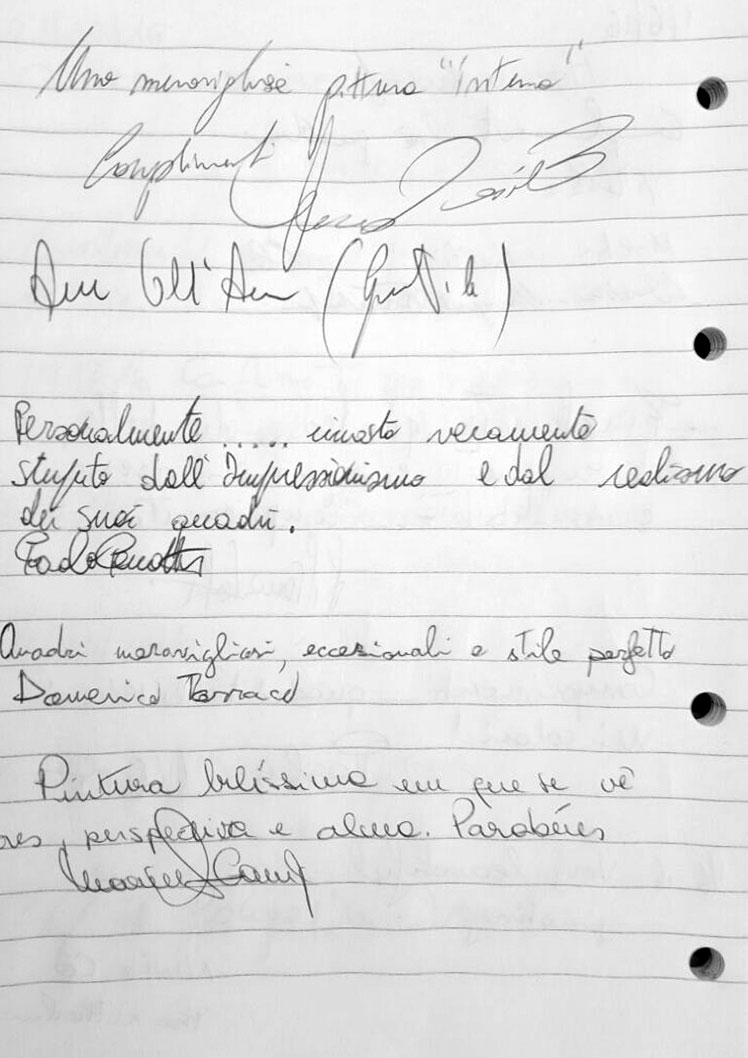 Una meravigliosa pittura "interna"
Complimenti
Personalmente ..... rimasto veramente
stupito dall'Impressionismo e dal realismo
dei suoi quadri.
Paolo
Quadri meravigliosi, eccezionali e stile perfetto
Domenico Tarraco
Pintura belíssima em que se vê
res, perspectiva e alma. Parabéns